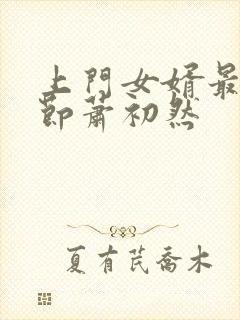 上門女婿最
節蕭初然
夏有芪喬木